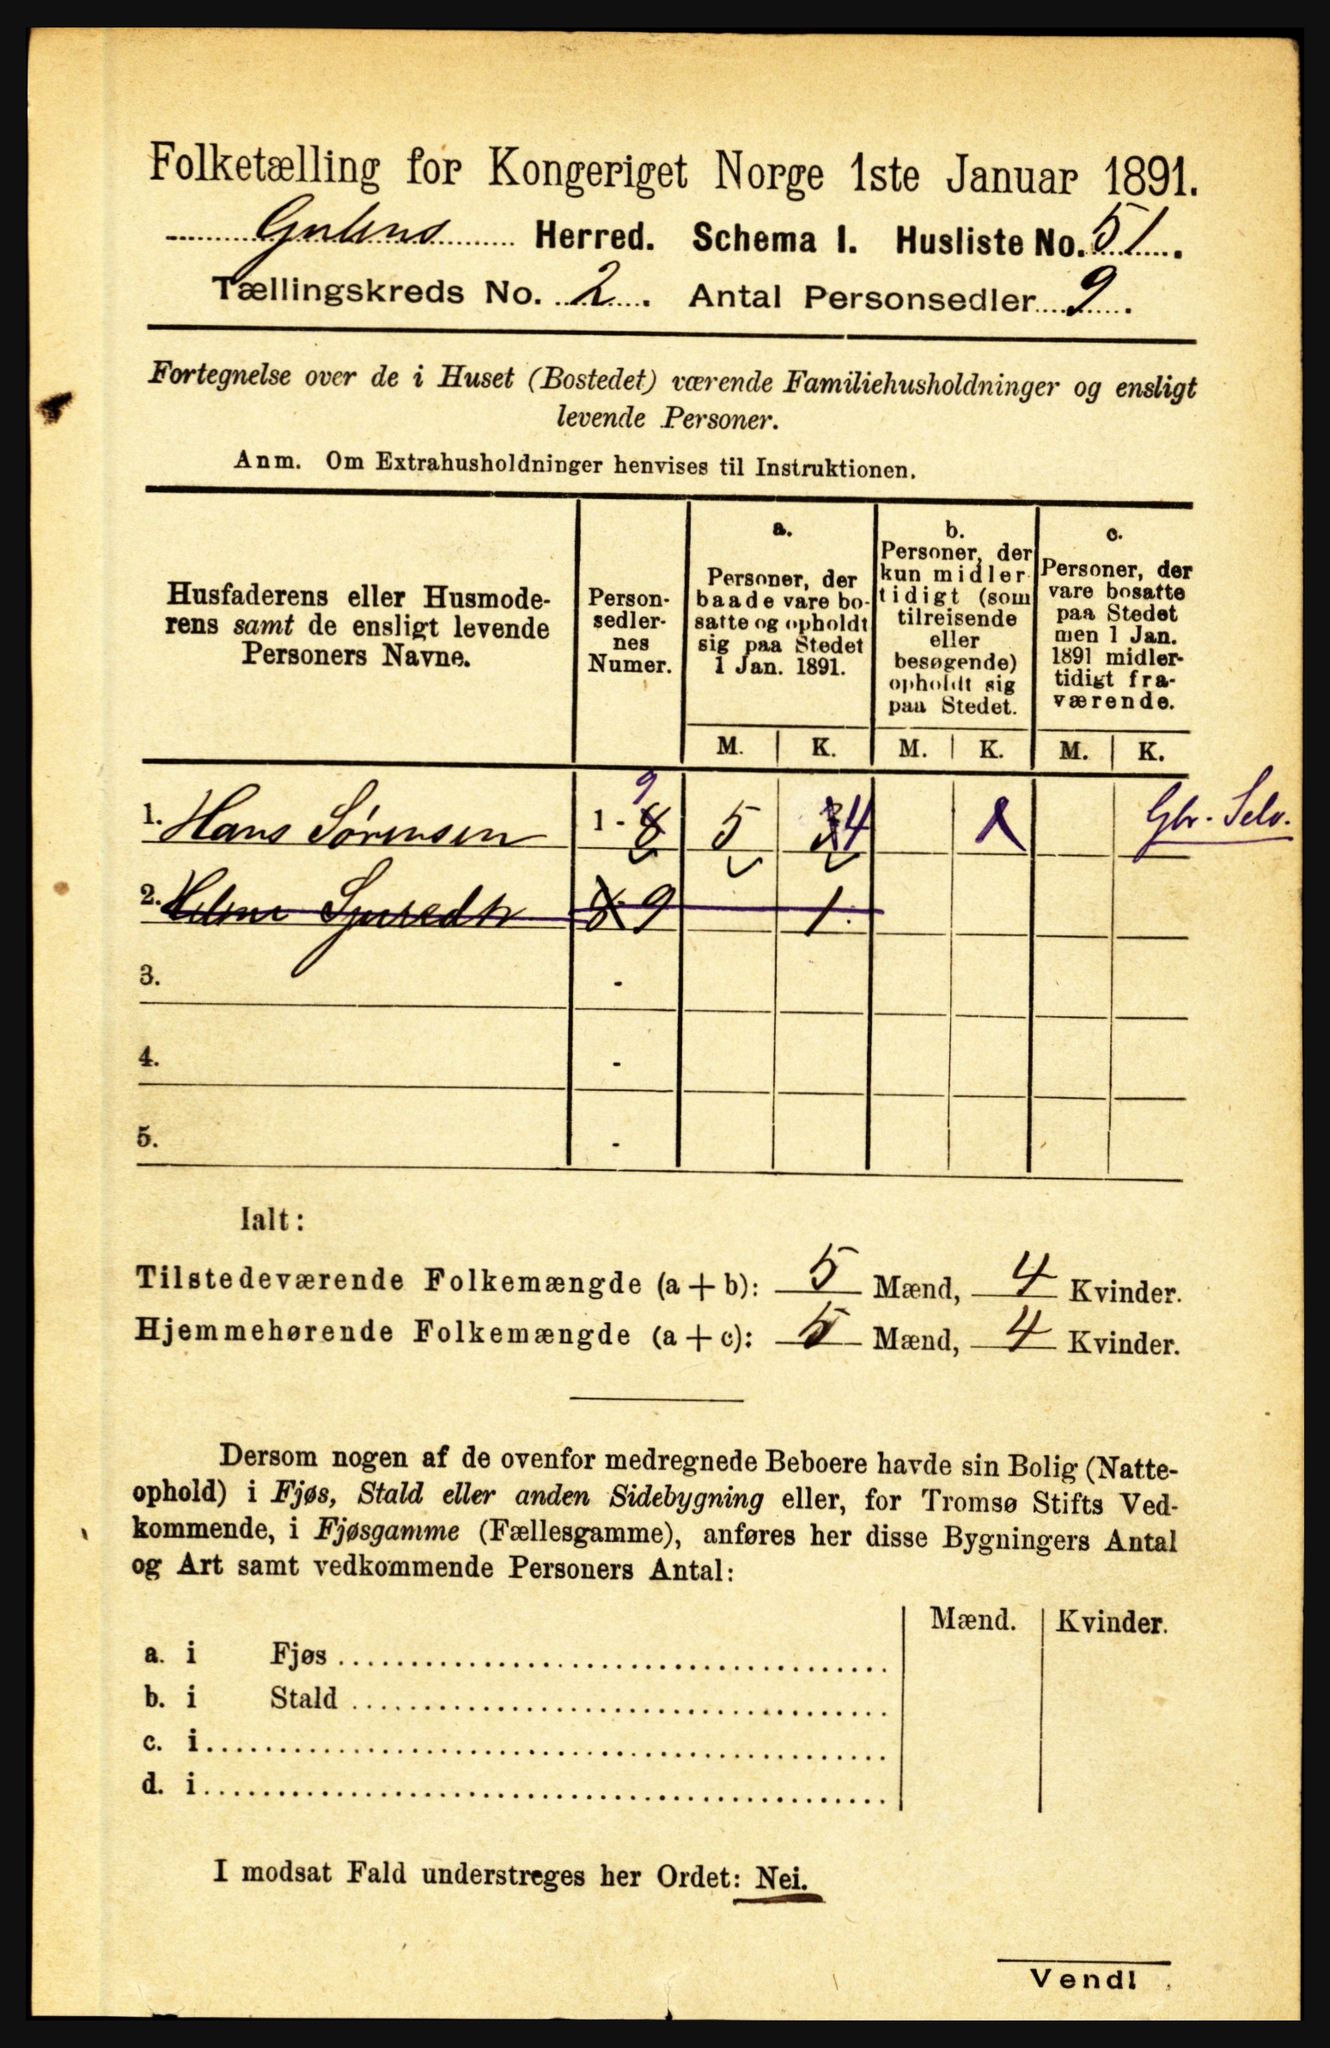 Folketælling for Kongeriget Norge 1ste Januar 1891.
Gulens Herred. Schema I. Husliste No. 51.
Tællingskreds No. 2. Antal Personsedler 9.
Fortegnelse over de i Huset (Bostedet) værende Familiehusholdninger og ensligt
levende Personer.
Anm. Om Extrahusholdninger henvises til Instruktionen.
Husfaderens eller Husmode-
rens samt de ensligt levende
Personers Navne.
Person-
sedler-
nes
Numer.
a.
Personer, der
baade vare bo-
satte og opholdt
sig paa Stedet
1 Jan. 1891.
b.
Personer, der
kun midler
tidigt (som
tilreisende
eller
besøgende)
opholdt sig
paa Stedet.
c.
Personer, der
vare bosatte
paa Stedet
men 1 Jan.
1891 midler-
tidigt fra-
værende.
M. K. M. K. M. K.
9
1. Hans Sørensen 1 - 8 5 3 4 Gbr. Selv.
2. 9 1.
3. -
4. -
5. -
Ialt:
Tilstedeværende Folkemængde (a + b): 5 Mænd, 4 Kvinder.
Hjemmehørende Folkemængde (a + c): 5 Mænd, 4 Kvinder.
Dersom nogen af de ovenfor medregnede Beboere havde sin Bolig (Natte-
ophold) i Fjøs, Stald eller anden Sidebygning eller, for Tromsø Stifts Ved-
kommende, i Fjøsgamme (Fællesgamme), anføres her disse Bygningers Antal
og Art samt vedkommende Personers Antal:
Mænd. Kvinder.
a. i Fjøs
b. i Stald
c. i
d. i
I modsat Fald understreges her Ordet: Nei.
Vend!